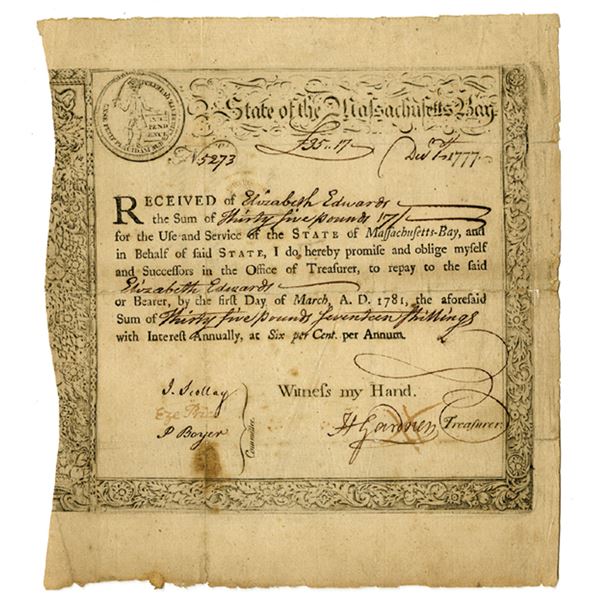 State of the Massachusetts Bay.
IN DE PEN DENCE
£35.. 17..
N.5273 Decr 1st 1777.
RECEIVED of Elizabeth Edwards
the Sum of Thirty five pounds 17/
for the Use and Service of the STATE of Massachusetts-Bay, and
in Behalf of said STATE, I do, hereby promise and oblige myself
and Successors in the Office of Treasurer, to repay to the said
Elizabeth Edwards
or Bearer, by the first Day of March, A. D. 1781, the aforesaid
Sum of Thirty five pounds Seventeen Shillings
with Interest Annually, at Six per Cent. per Annum.
Witness my Hand.
J. Scollay
Eze Price
P Boyer
Committee.
H Gardner Treasurer